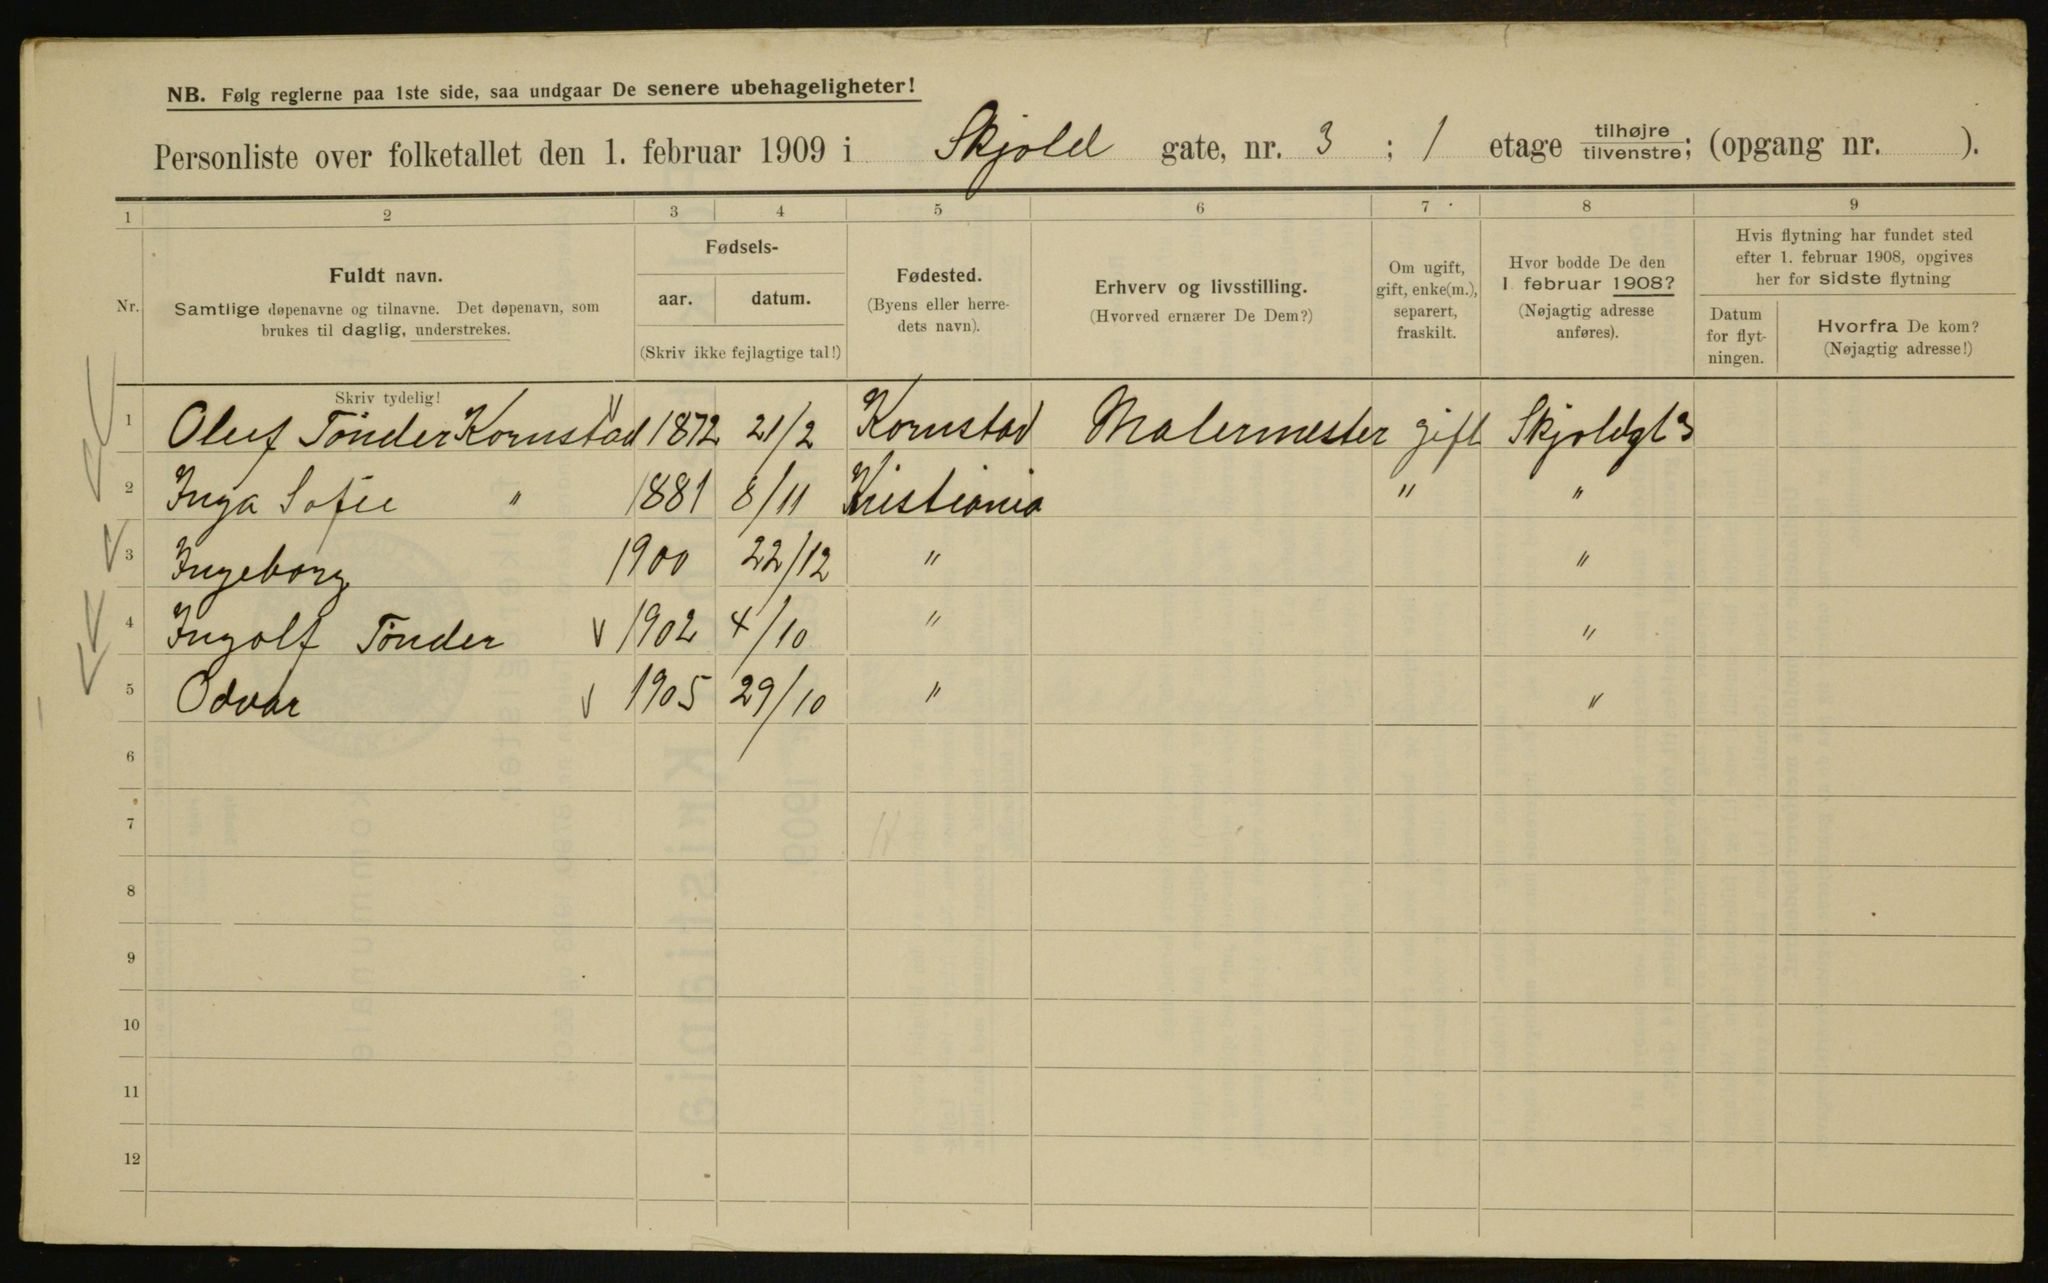 NB. Følg reglerne paa 1ste side, saa undgaar De senere ubehageligheter!
Personliste over folketallet den 1. februar 1909 i Skjold gate, nr. 3 ; 1 etage tilhøjre tilvenstre; (opgang nr. ).
1 2 3 4 5 6 7 8 9
Nr.
Fuldt navn.
Samtlige døpenavne og tilnavne. Det døpenavn, som
brukes til daglig, understrekes.
Skriv tydelig!
Fødsels-
aar. datum.
(Skriv ikke fejlagtige tal!)
Fødested.
(Byens eller herre-
dets navn).
Erhverv og livsstilling.
(Hvorved ernærer De Dem?)
Om ugift,
gift, enke(m.),
separert,
fraskilt.
Hvor bodde De den
1. februar 1908?
(Nøjagtig adresse
anføres).
Hvis flytning har fundet sted
efter 1. februar 1908, opgives
her for sidste flytning
Datum
for flyt-
ningen.
Hvorfra De kom?
(Nøjagtig adresse!)
1 Oluf Tönder Kornstad 1872 21/2 Kornstad Malermester gift Skjoldgt 3
2 Inga Sofie " 1881 8/11 Kristiania " "
3 Ingeborg 1900 22/12 " "
4 Ingolf Tönder 1902 4/10 " "
5 Odvar 1905 29/10 " "
6
7
8
9
10
11
12